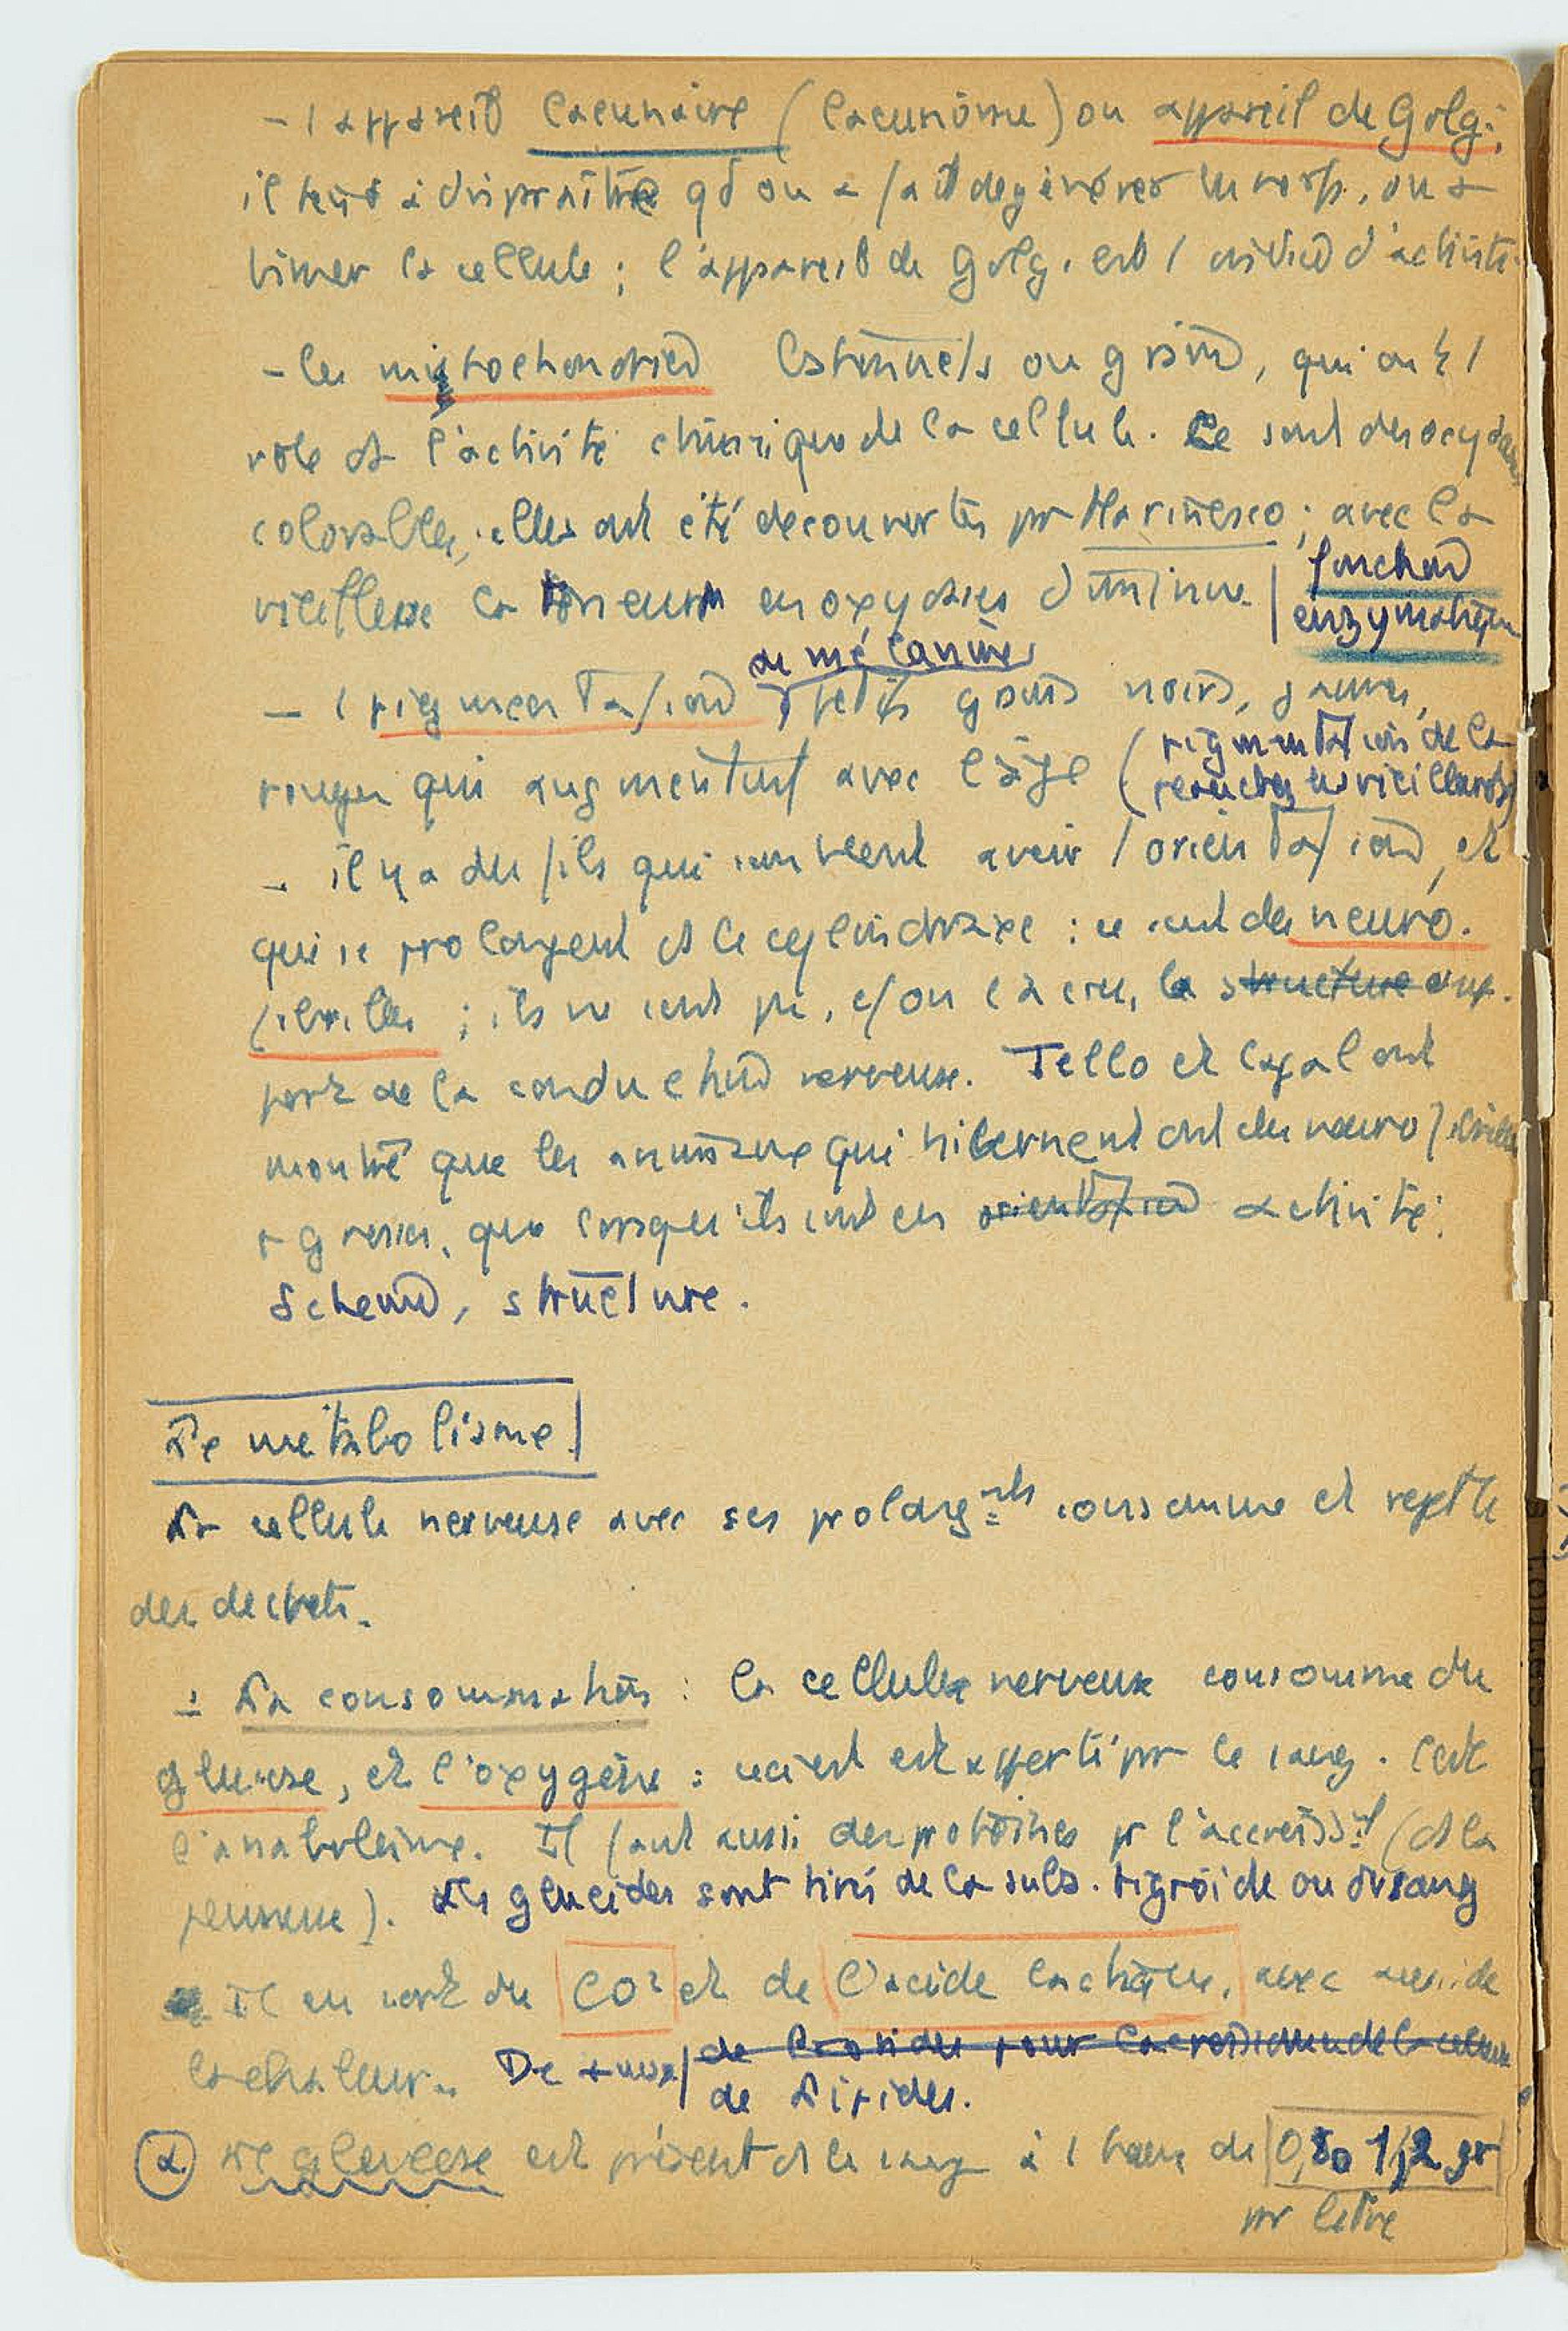 - l appareil lacunaire (lacunôme) ou appareil de Golgi;
il tend à disparaître qd on a fait dégénérer le nerf, ou a
la cellule ; l'appareil de Golgi est l d'activité.
- les mitochondries ou grains, qui ont l
rôle ds l'activité chimique de la cellule. Ce sont des oxydases
colorables, elles ont été découvertes pr Marinesco ; avec la
fonction
vieillesse la teneur en oxydases diminue |
enzymatique
de mélanines
- l pigmentation petits grains noirs, jaunes,
rouges qui augmentent avec l'âge (pigmentation de la
perruches les vieillards)
- il y a des fils qui semblent avoir l orientation, et
qui se prolongent ds le cylindraxe : ce sont des neuro-
fibrilles ; ils ne sont pas, c/ on l'a cru, la structure sup-
port de la conduction nerveuse. Tello et Cajal ont
montré que les animaux qui hibernent ont des neurofibrilles
+ grosses, que lorsqu'ils sont en orientation activité.
Schema, structure.
Le métabolisme
La cellule nerveuse avec ses prolongnts consomme et rejette
des dechets.
- La consommation : la cellule nerveuse consomme du
glucose, et l'oxygène : ceci est apporté pr le sang. C'est
l'anabolisme. Il faut aussi des protéines pr l'accroisst (ds la
jeunesse). Les glucides sont tirés de la subs. tigroïde ou du sang
Il en sort du CO² et de l'acide lactique, avec aussi de
la chaleur. De aussi | de Protides pour l'accroissement de la cellule
de Lipides.
α Le glucose est présent ds le sang à l taux de 0,80 1,2 gr
pr litre